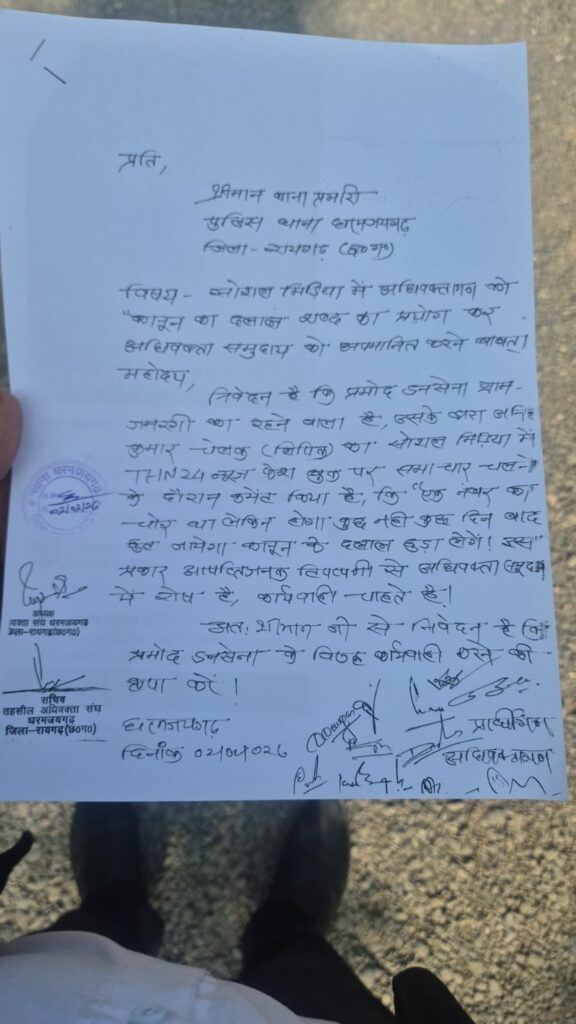 प्रति,
श्रीमान थाना प्रभारी
पुलिस थाना धरमजयगढ़
जिला - रायगढ़ (छ०ग०)
विषय - सोशल मिडिया में अधिवक्तागण को
"कानून का दलाल" शब्द का प्रयोग कर
अधिवक्ता समुदाय को अपमानित करने बाबत्।
महोदय,
निवेदन है कि प्रमोद डनसेना ग्राम-
जमरगी का रहने वाला है, उसके द्वारा
कुमार चेलक (लिपिक) का सोशल मिडिया में
THN24 न्यूज फेस बुक पर समाचार चलने
के दौरान कमेंट किया है, कि "एक नंबर का
चोर था लेकिन होगा कुछ नही कुछ दिन बाद
छुट जायेगा कानून के दलाल छुड़ा लेगें! उस
प्रकार आपत्तिजनक टिपप्पणी से अधिवक्ता समुदाय
में रोष है, कार्यवाही चाहते है।
अतः श्रीमान जी से निवेदन है कि
प्रमोद डनसेना के विरुद्ध कार्यवाही करने की
कृपा करें।
धरमजयगढ़
दिनाँक
प्रार्थीगण
अधिवक्तागण
थाना धरमजयगढ़
अध्यक्ष
धिवक्ता संघ धरमजयगढ़
जिला-रायगढ़(छ०ग०)
सचिव
तहसील अधिवक्ता संघ
धरमजयगढ़
जिला-रायगढ़(छ०ग०)